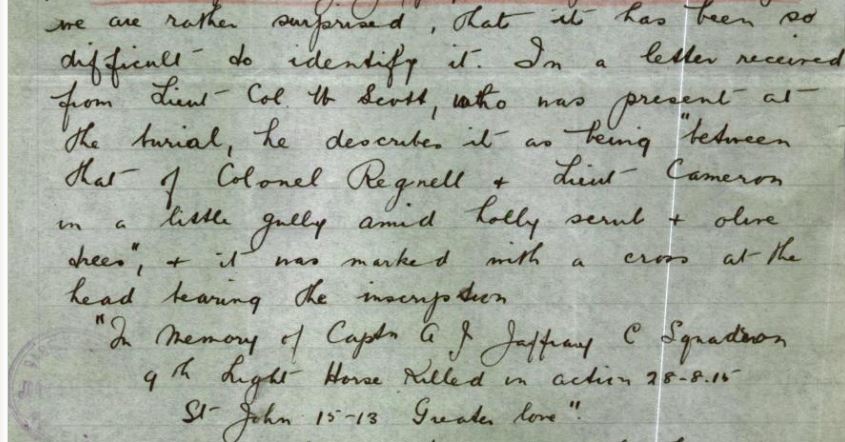 we are rather surprised, that it has been so
difficult to identify it. In a letter received
from Lieut Col. W Scott, who was present at
the burial, he describes it as being "between
that of Colonel Regnell + Lieut Cameron
in a little gully amid holly scrub + olive
trees", + it was marked with a cross at the
head bearing the inscription
"In Memory of Captn A J Jaffray C Squadron
9th Light Horse Killed in action 28-8.15
St John 15-13 Greater love".